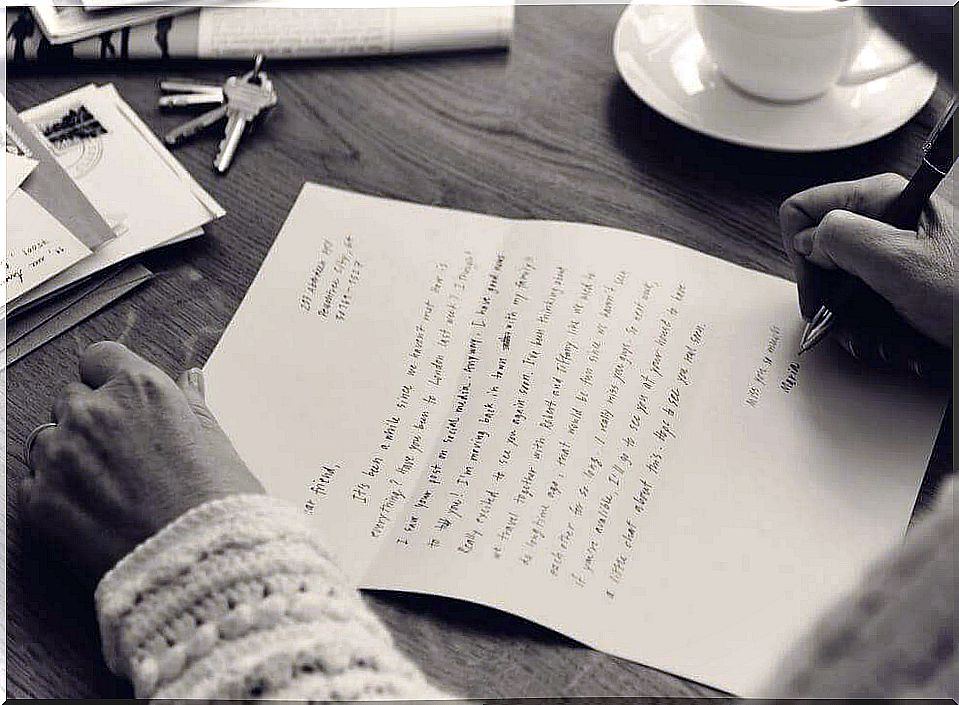 ar friend,
It's been a while since we haven't met. How is
everything? Have you been to London last week? I thought
I saw your post on social media. Anyway, I have good news
to you! I'm moving back in town with my family!
Really excited to see you again soon. I've been thinking about
we travel together with Robert and Tiffany like we used to
do long time ago, that would be fun since we haven't see
each other for so long. I really miss you guys. So next week,
if you're available, I'll go to see you at your house to have
a little chat about this. Hope to see you real soon.
Miss you so much
Maria